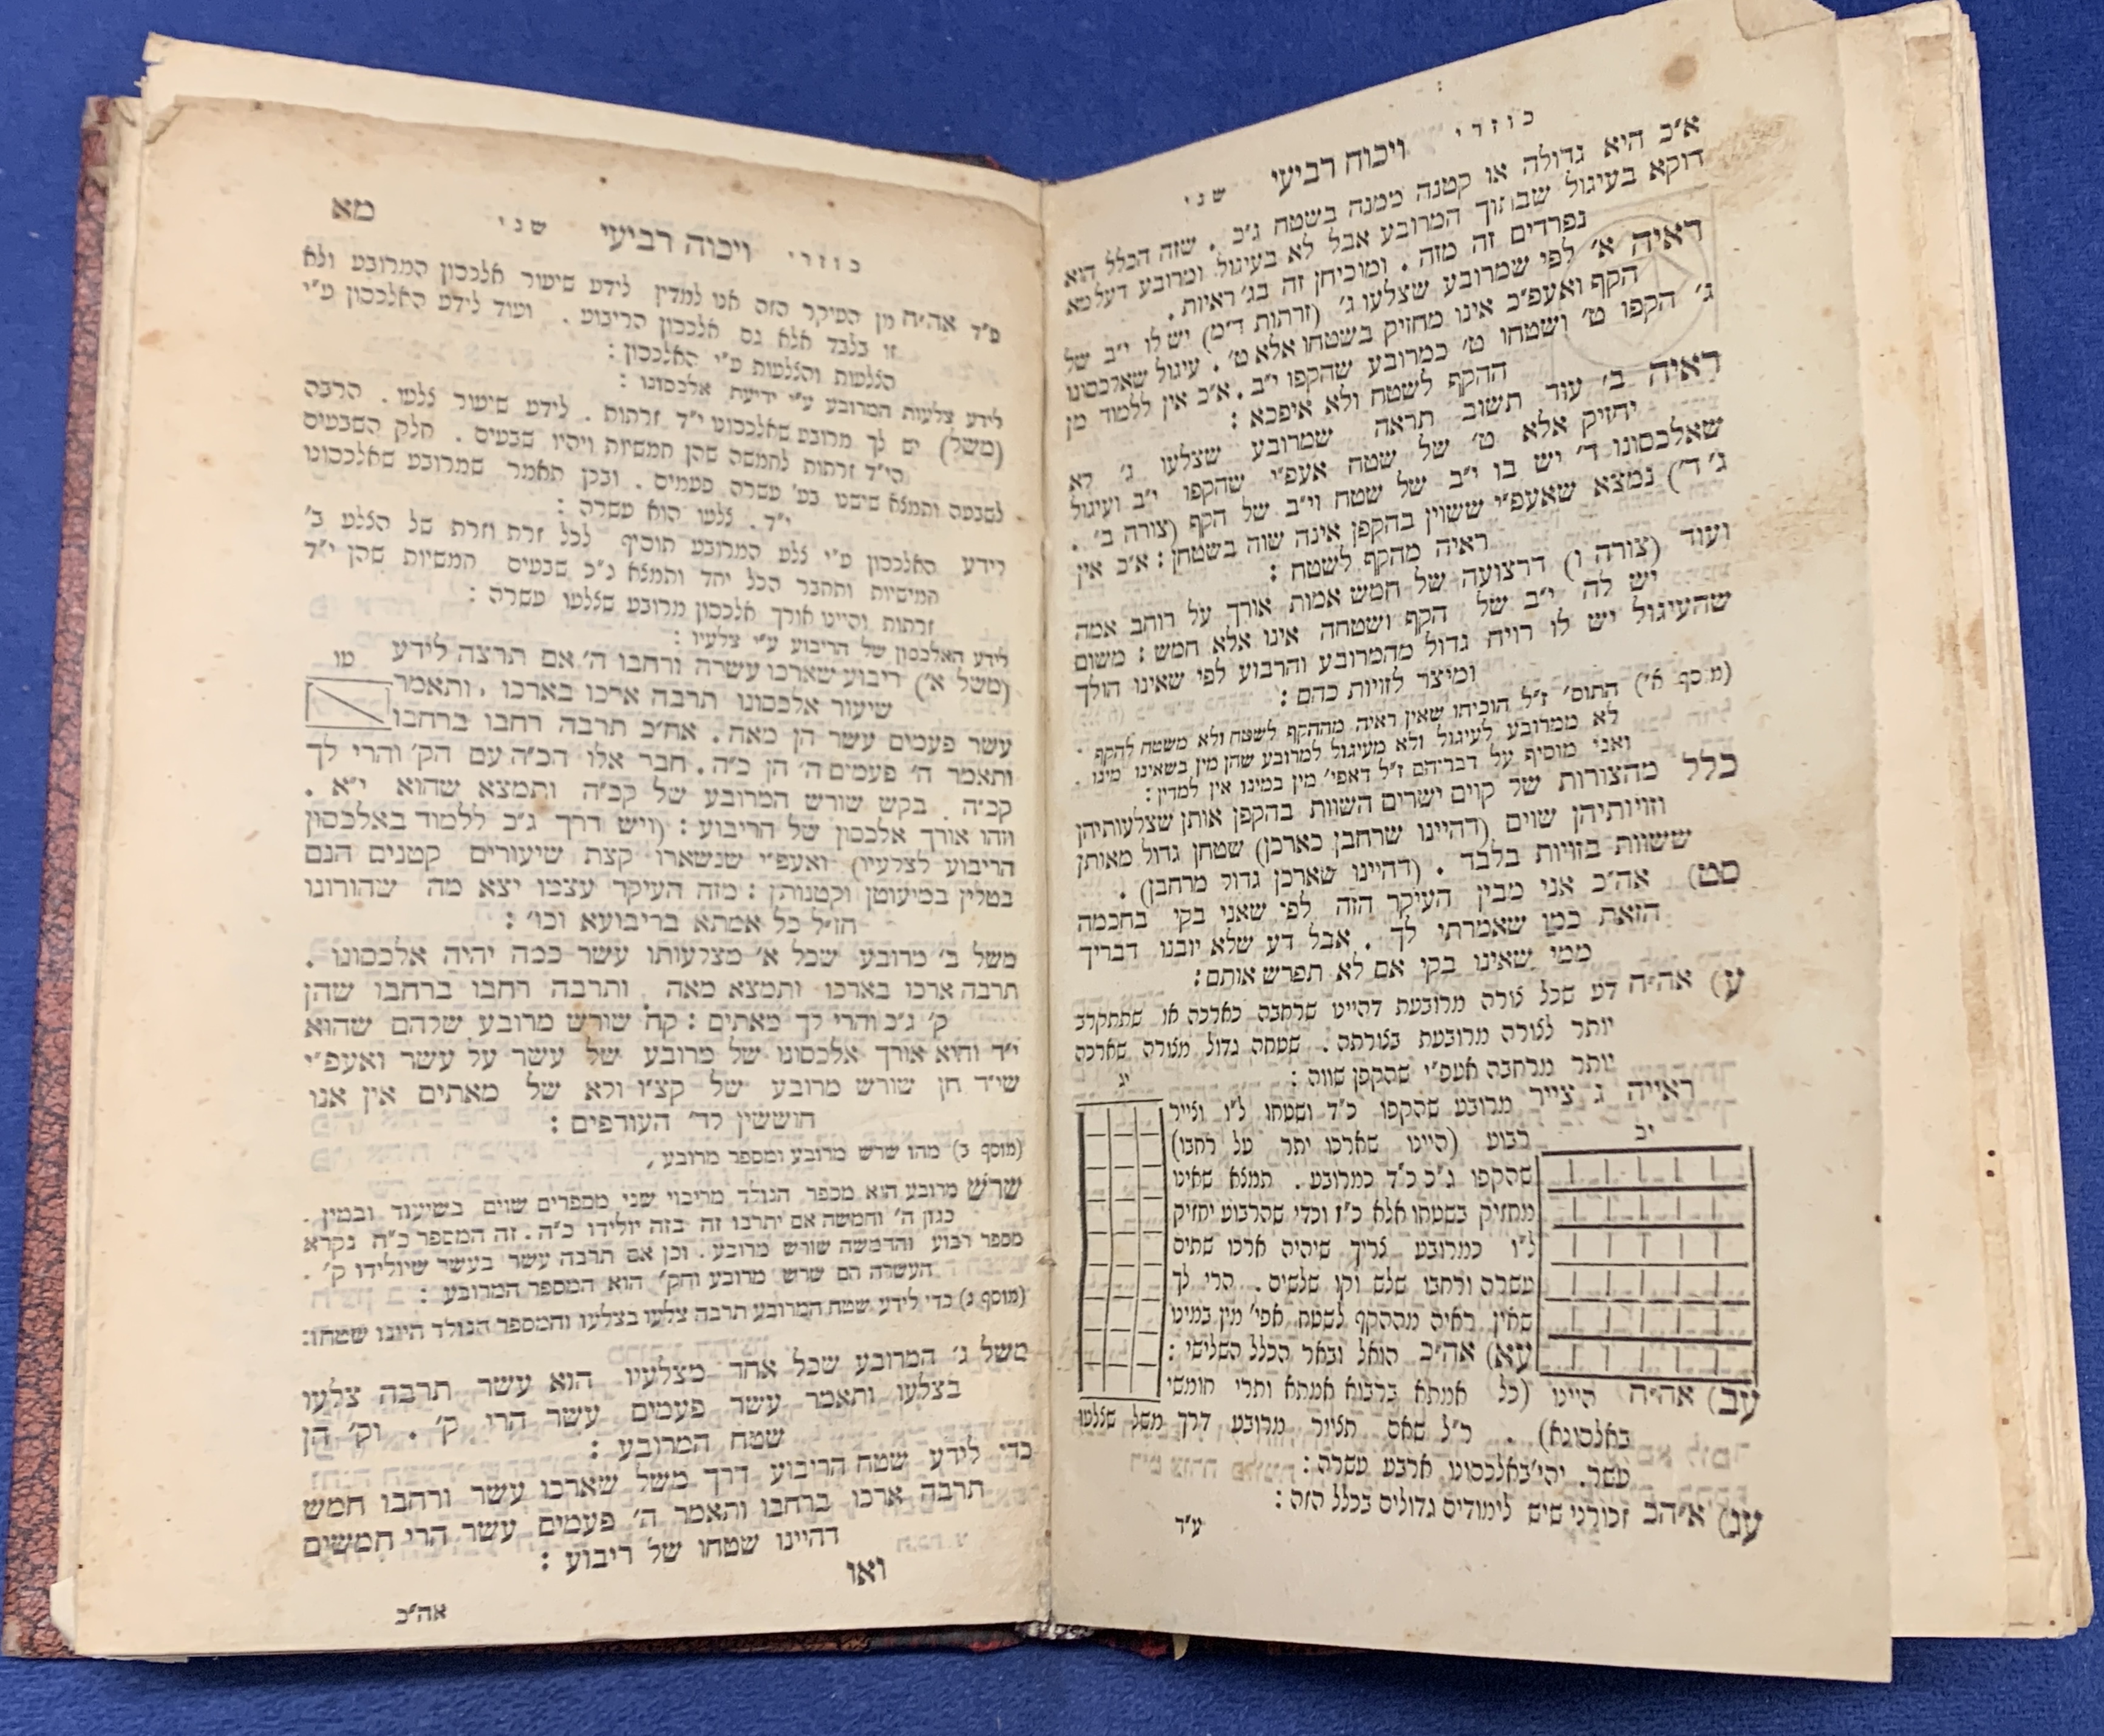 כוזרי ויכוח רביעי שני
א״כ היא גדולה או קטנה ממנה בשטח ג״כ . שזה הכלל הוא
דוקא בעיגול שבתוך המרובע אבל לא בעיגול ומרובע דעלמא
נפרדים זה מזה . ומוכיחן זה בג׳ ראיות .
ראיה א׳ לפי שמרובע שצלעו ג׳ (זרתות ד״מ) יש לו י״ב של
הקף ואעפ״כ אינו מחזיק בשטחו אלא ט׳ . עיגול שאלכסונו
ג׳ הקפו ט׳ ושטחו ט׳ כמרובע שהקפו י״ב . א״כ אין ללמוד מן
ההקף לשטח ולא איפכא :
ראיה ב׳ עוד תשוב תראה שמרובע שצלעו ג׳ לא
יחזיק אלא ט׳ של שטח אעפ״י שהקפו י״ב ועיגול
שאלכסונו ד׳ יש בו י״ב של שטח וי״ב של הקף (צורה ב׳ .
ג׳ ד׳) נמצא שאעפ״י ששוין בהקפן אינה שוה בשטחן : א״כ אין
ראיה מהקף לשטח :
ועוד (צורה ו) דרצועה של חמש אמות אורך על רוחב אמה
יש לה י״ב של הקף ושטחה אינו אלא חמש : משום
שהעיגול יש לו רויח גדול מהמרובע והרבוע לפי שאינו הולך
ומיצר לזויות כהם :
(מוסף א׳) התוס׳ ז״ל הוכיחו שאין ראיה מההקף לשטח ולא משטח להקף .
לא ממרובע לעיגול ולא מעיגול למרובע שהן מין בשאינו מינו .
ואני מוסיף על דבריהם ז״ל דאפי׳ מין במינו אין למדין :
כלל מהצורות של קוים ישרים השוות בהקפן אותן שצלעותיהן
וזויותיהן שוים (דהיינו שרחבן כארכן) שטחן גדול מאותן
ששוות בזויות בלבד . (דהיינו שארכן גדול מרחבן) .
סט) אה״כ אני מבין העיקר הזה לפי שאני בקי בחכמה
הזאת כמו שאמרתי לך . אבל דע שלא יובנו דבריך
ממי שאינו בקי אם לא תפרש אותם :
ע) אה״ח דע שכל צורה מרובעת דהיינו שרחבה כארכה או שתתקרב
יותר לצורה מרובעת בצורתה . שטחה גדול מצורה שארכה
יותר מרחבה אעפ״י שהקפן שווה :
ראייה ג צייר מרובע שהקפו כ״ד ושטחו ל״ו וצייר
רבוע (היינו שארכו יתר על רחבו)
שהקפו ג״כ כ״ד כמרובע . תמצא שאינו
מחזיק בשטחו אלא כ״ז וכדי שהרבוע יחזיק
ל״ו כמרובע צריך שיהיה ארכו שתים
עשרה ורחבו שלש וקו שלשים . הרי לך
שאין ראיה מההקף לשטח אפי׳ מין במינו
עא) אה״כ הואל ובאר הכלל השלישי :
עב) אה״ח היינו (כל אמתא ברבוא אמתא ותרי חומשי
באלכסונא) . ר״ל שאם תצייר מרובע דרך משל שצלעו
עשר . יהי׳ באלכסונו ארבע עשרה :
עג) א״הכ זכורני שיש לימודים גדולים בכלל הזה :
יב
יג
ע״ד
כוזרי ויכוח רביעי שני מא
ע״ד אה״ח מן העיקר הזה אנו למדין לידע שיעור אלכסון המרובע ולא
זו בלבד אלא גם אלכסון הריבוע . ועוד לידע האלכסון ע״י
הצלעות והצלעות ע״י האלכסון :
לידע צלעות המרובע ע״י ידיעת אלכסונו :
(משל) יש לך מרובע שאלכסונו י״ד זרתות . לידע שיעור צלעו . הרבה
הי״ד זרתות לחמשה שהן חמשיות ויהיו שבעים . חלק השבעים
לשבעה ותמצא שישנו בע׳ עשרה פעמים . ובכן תאמר שמרובע שאלכסונו
י״ד . צלעו הוא עשרה :
לידע האלכסון ע״י צלע המרובע תוסיף לכל זרת וזרת של הצלע ב׳
חמישיות ותחבר הכל יחד ותמצא ג״כ שבעים חמשיות שהן י״ד
זרתות והיינו אורך אלכסון מרובע שצלעו עשרה :
לידע האלכסון של הריבוע ע״י צלעיו :
(משל א׳) ריבוע שארכו עשרה ורחבו ה׳ אם תרצה לידע
טו
שיעור אלכסונו תרבה ארכו בארכו , ותאמר
עשר פעמים עשר הן מאה . אח״כ תרבה רחבו ברחבו
ותאמר ה׳ פעמים ה׳ הן כ״ה . חבר אלו הכ״ה עם הק׳ והרי לך
קכ״ה . בקש שורש המרובע של קכ״ה ותמצא שהוא י״א .
וזהו אורך אלכסון של הריבוע : (ויש דרך ג״כ ללמוד באלכסון
הריבוע לצלעיו) ואעפ״י שנשארו קצת שיעורים קטנים הנם
בטלין במיעוטן וקטנותן : מזה העיקר עצמו יצא מה שהורונו
חז״ל כל אמתא בריבועא וכו׳ :
משל ב׳ מרובע שכל א׳ מצלעותו עשר כמה יהיה אלכסונו .
תרבה ארכו בארכו ותמצא מאה . ותרבה רחבו ברחבו שהן
ק׳ ג״כ והרי לך מאתים : קח שורש מרובע שלהם שהוא
י״ד והוא אורך אלכסונו של מרובע של עשר על עשר ואעפ״י
שי״ד הן שורש מרובע של קצ״ו ולא של מאתים אין אנו
חוששין לד׳ העודפים :
(מוסף ב) מהו שרש מרובע ומספר מרובע ,
שרש מרובע הוא מכפר הנולד מריבוי שני מספרים שוים בשיעור ובמין .
כגון ה׳ וחמשה אם יתרבו זה בזה יולידו כ״ה . זה המספר כ״ה נקרא
מספר רבוע והחמשה שורש מרובע . וכן אם תרבה עשר בעשר שיולידו ק׳ .
העשרה הם שרש מרובע והק׳ הוא המספר המרובע :
(מוסף ג) כדי לידע שטח המרובע תרבה צלעו בצלעו והמספר הנולד היונו שטחו :
משל ג׳ המרובע שכל אחד מצלעיו הוא עשר תרבה צלעו
בצלעו ותאמר עשר פעמים עשר הרי ק׳ . וק׳ הן
שטח המרובע :
כדי לידע שטח הריבוע דרך משל שארכו עשר ורחבו חמש
תרבה ארכו ברחבו והאמר ה׳ פעמים עשר הרי חמשים
דהיינו שטחו של ריבוע :
ואו
אה״כ